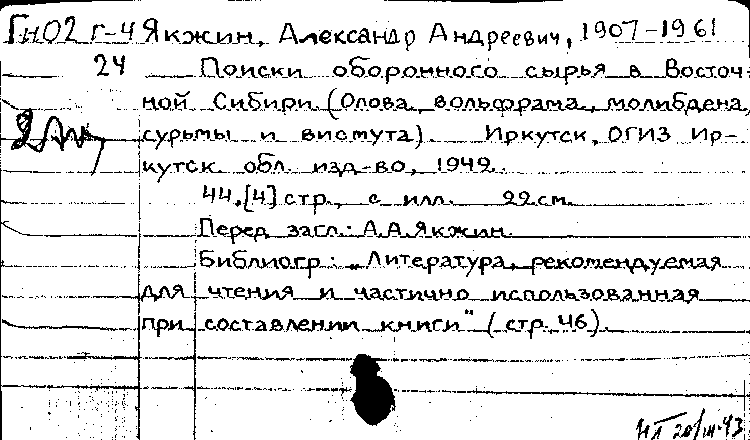 Гн02 г-4 Якжин, Александр Андреевич, 1907-1961
24 Поиски оборонного сырья в Восточ-
ной Сибири (Олова, вольфрама, молибдена,
сурьмы и висмута). Иркутск, ОГИЗ Ир-
кутск. обл. изд-во, 1942.
44,[4] стр., с илл. 22 см.
Перед загл.: А.А.Якжин.
Библиогр.: „Литература, рекомендуемая
для чтения и частично использованная
при составлении книги" (стр. 46).
20/III-43